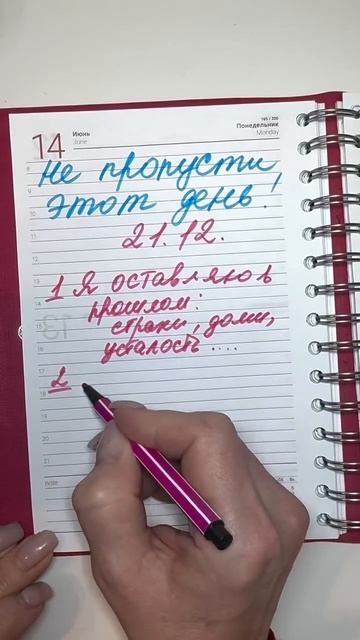 14
Июнь
June
165 / 200
Понедельник
Monday
Не пропусти
этот день!
21.12.
1 Я оставляю в
прошлом:
страхи, долги,
усталость ....
2